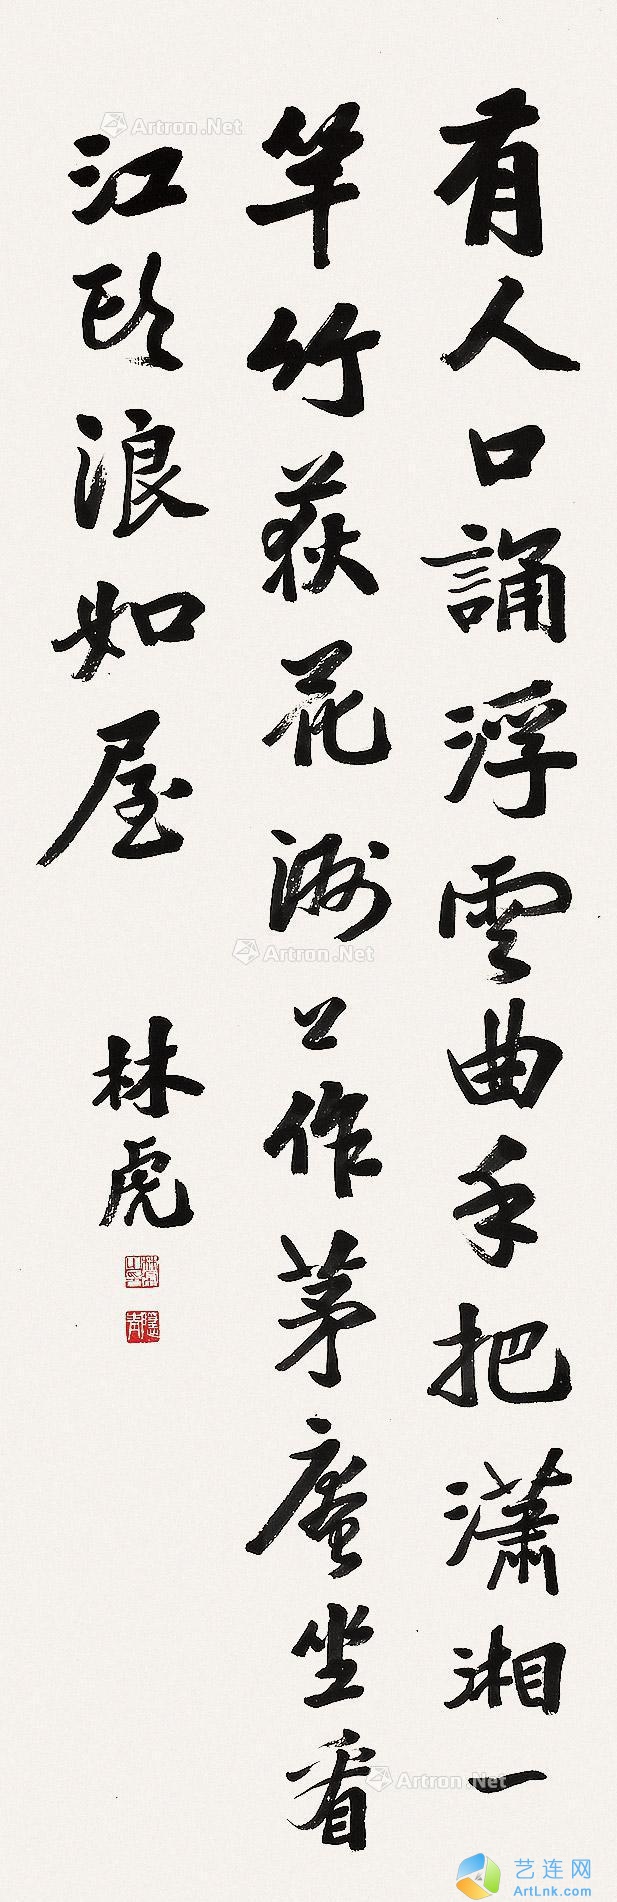 有人口誦浮雲曲手把瀟湘一
竿竹荻花洲上作茅庵坐看
江頭浪如屋
林虎
Artron.Net
Artron.Net
Artron.Net
艺连网
ArtLnk.com